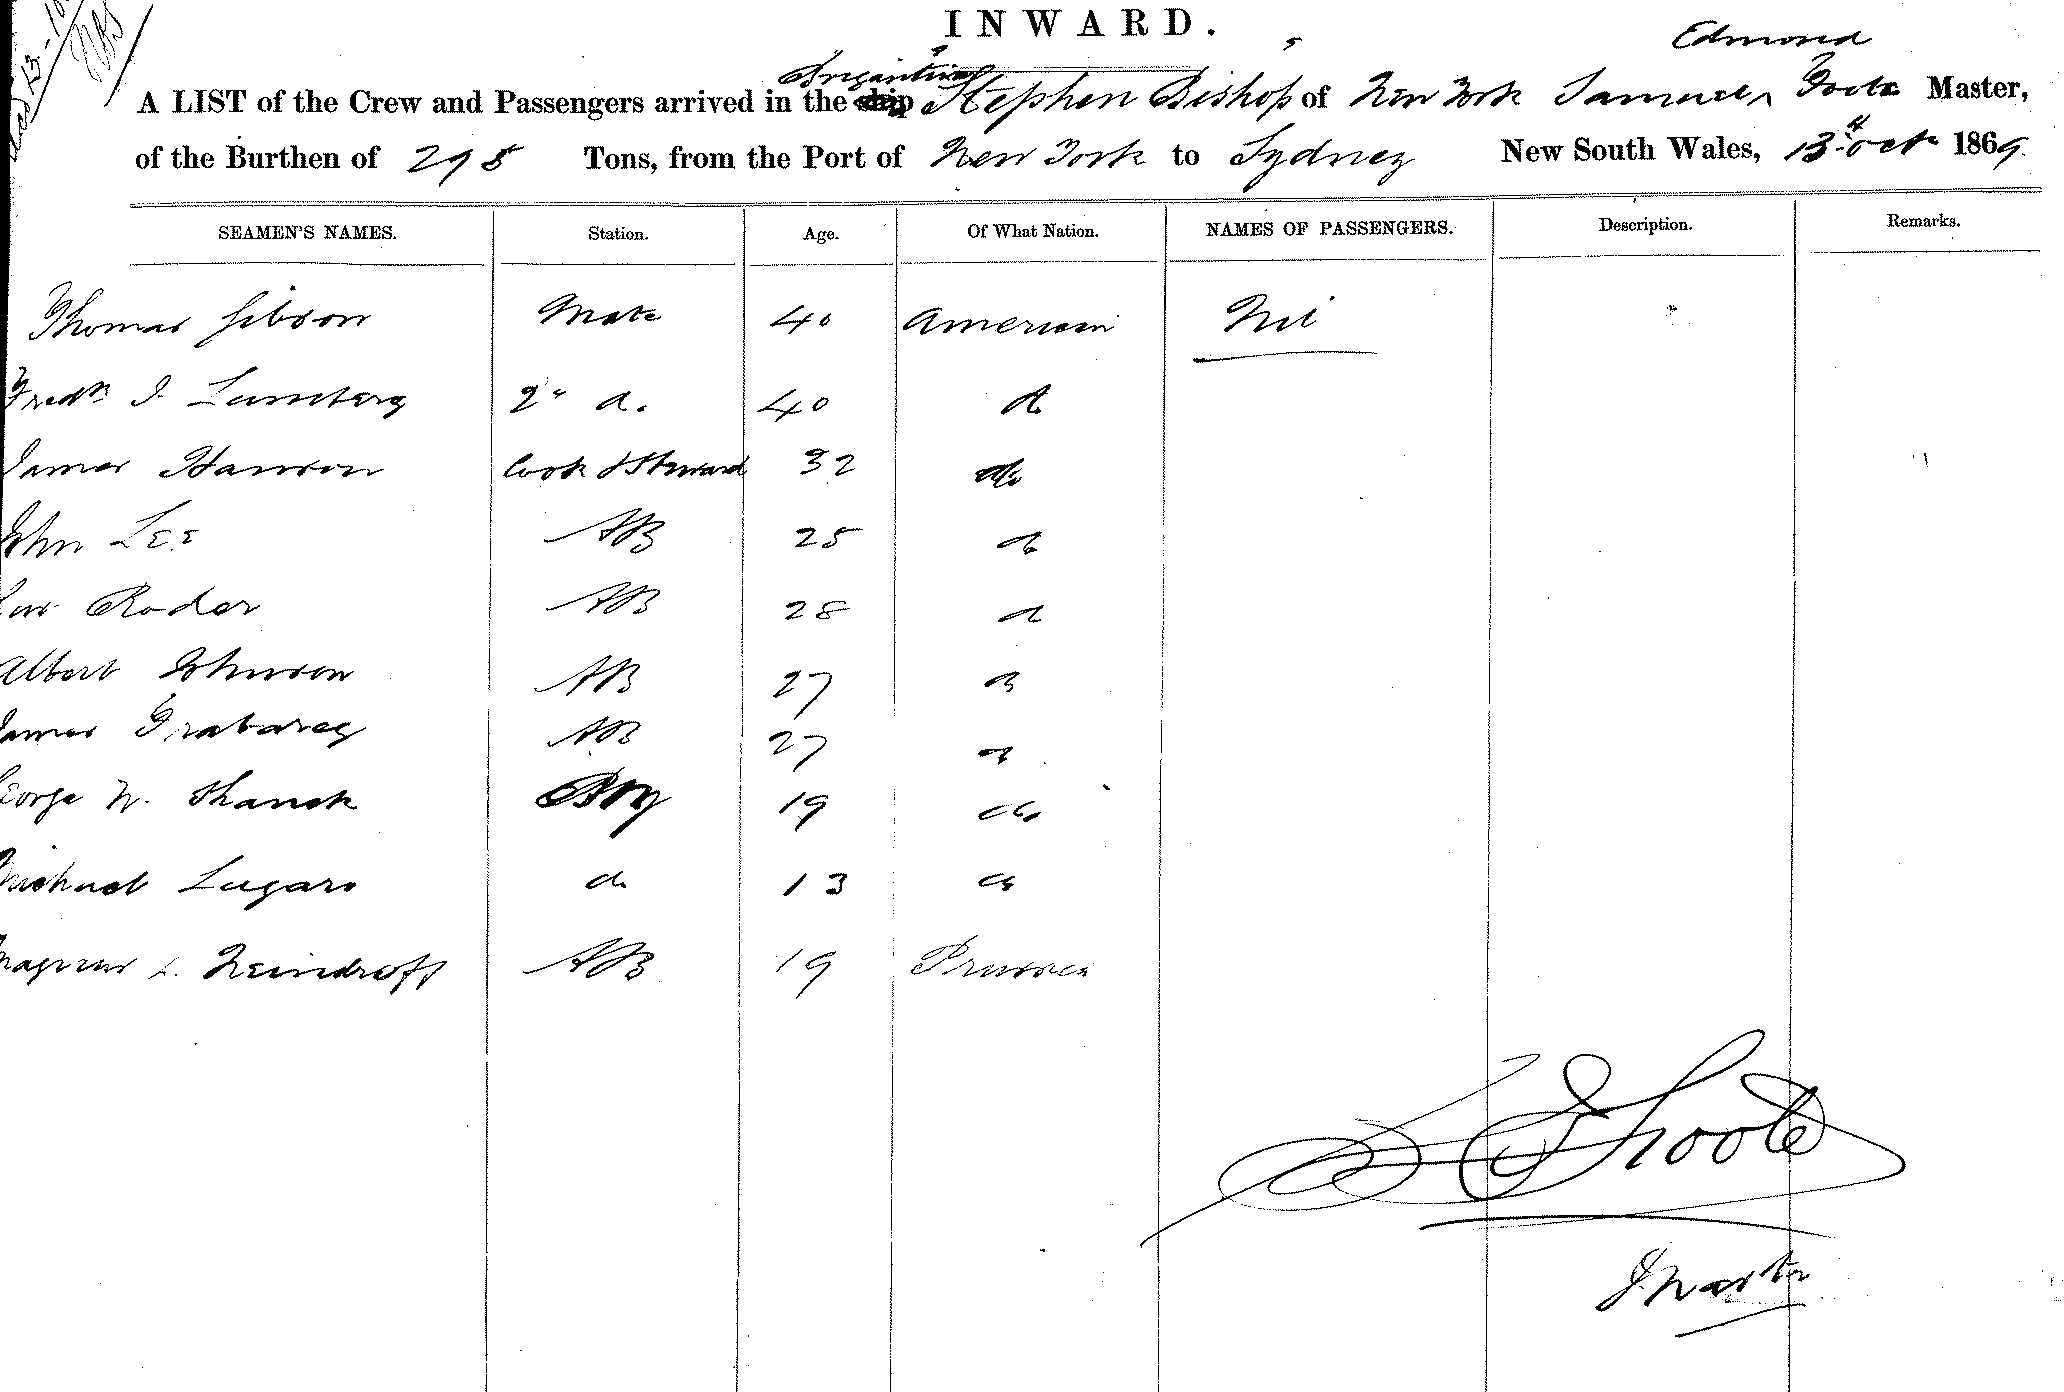 INWARD.
Edmond
Brigantine
A LIST of the Crew and Passengers arrived in the ship "Stephen Bishop" of New York Samuel Foote Master,
of the Burthen of 298 Tons, from the Port of New York to Sydney New South Wales, 13th Oct 1869
SEAMEN'S NAMES. Station. Age. Of What Nation. NAMES OF PASSENGERS. Description. Remarks.
Thomas Gibson Mate 40 American Nil
Fredk J. Lumberg 2" do. 40 do
James Hanson Cook & Steward 32 do
John Lee AB 25 do
Roder AB 28 do
Albert Johnson AB 27 do
James AB 27 do
George W. Shanck Boy 19 do.
Michael Lugaro do 13 do
Magnus L. Neindroff AB 19 Prussia
S E Foote
Master